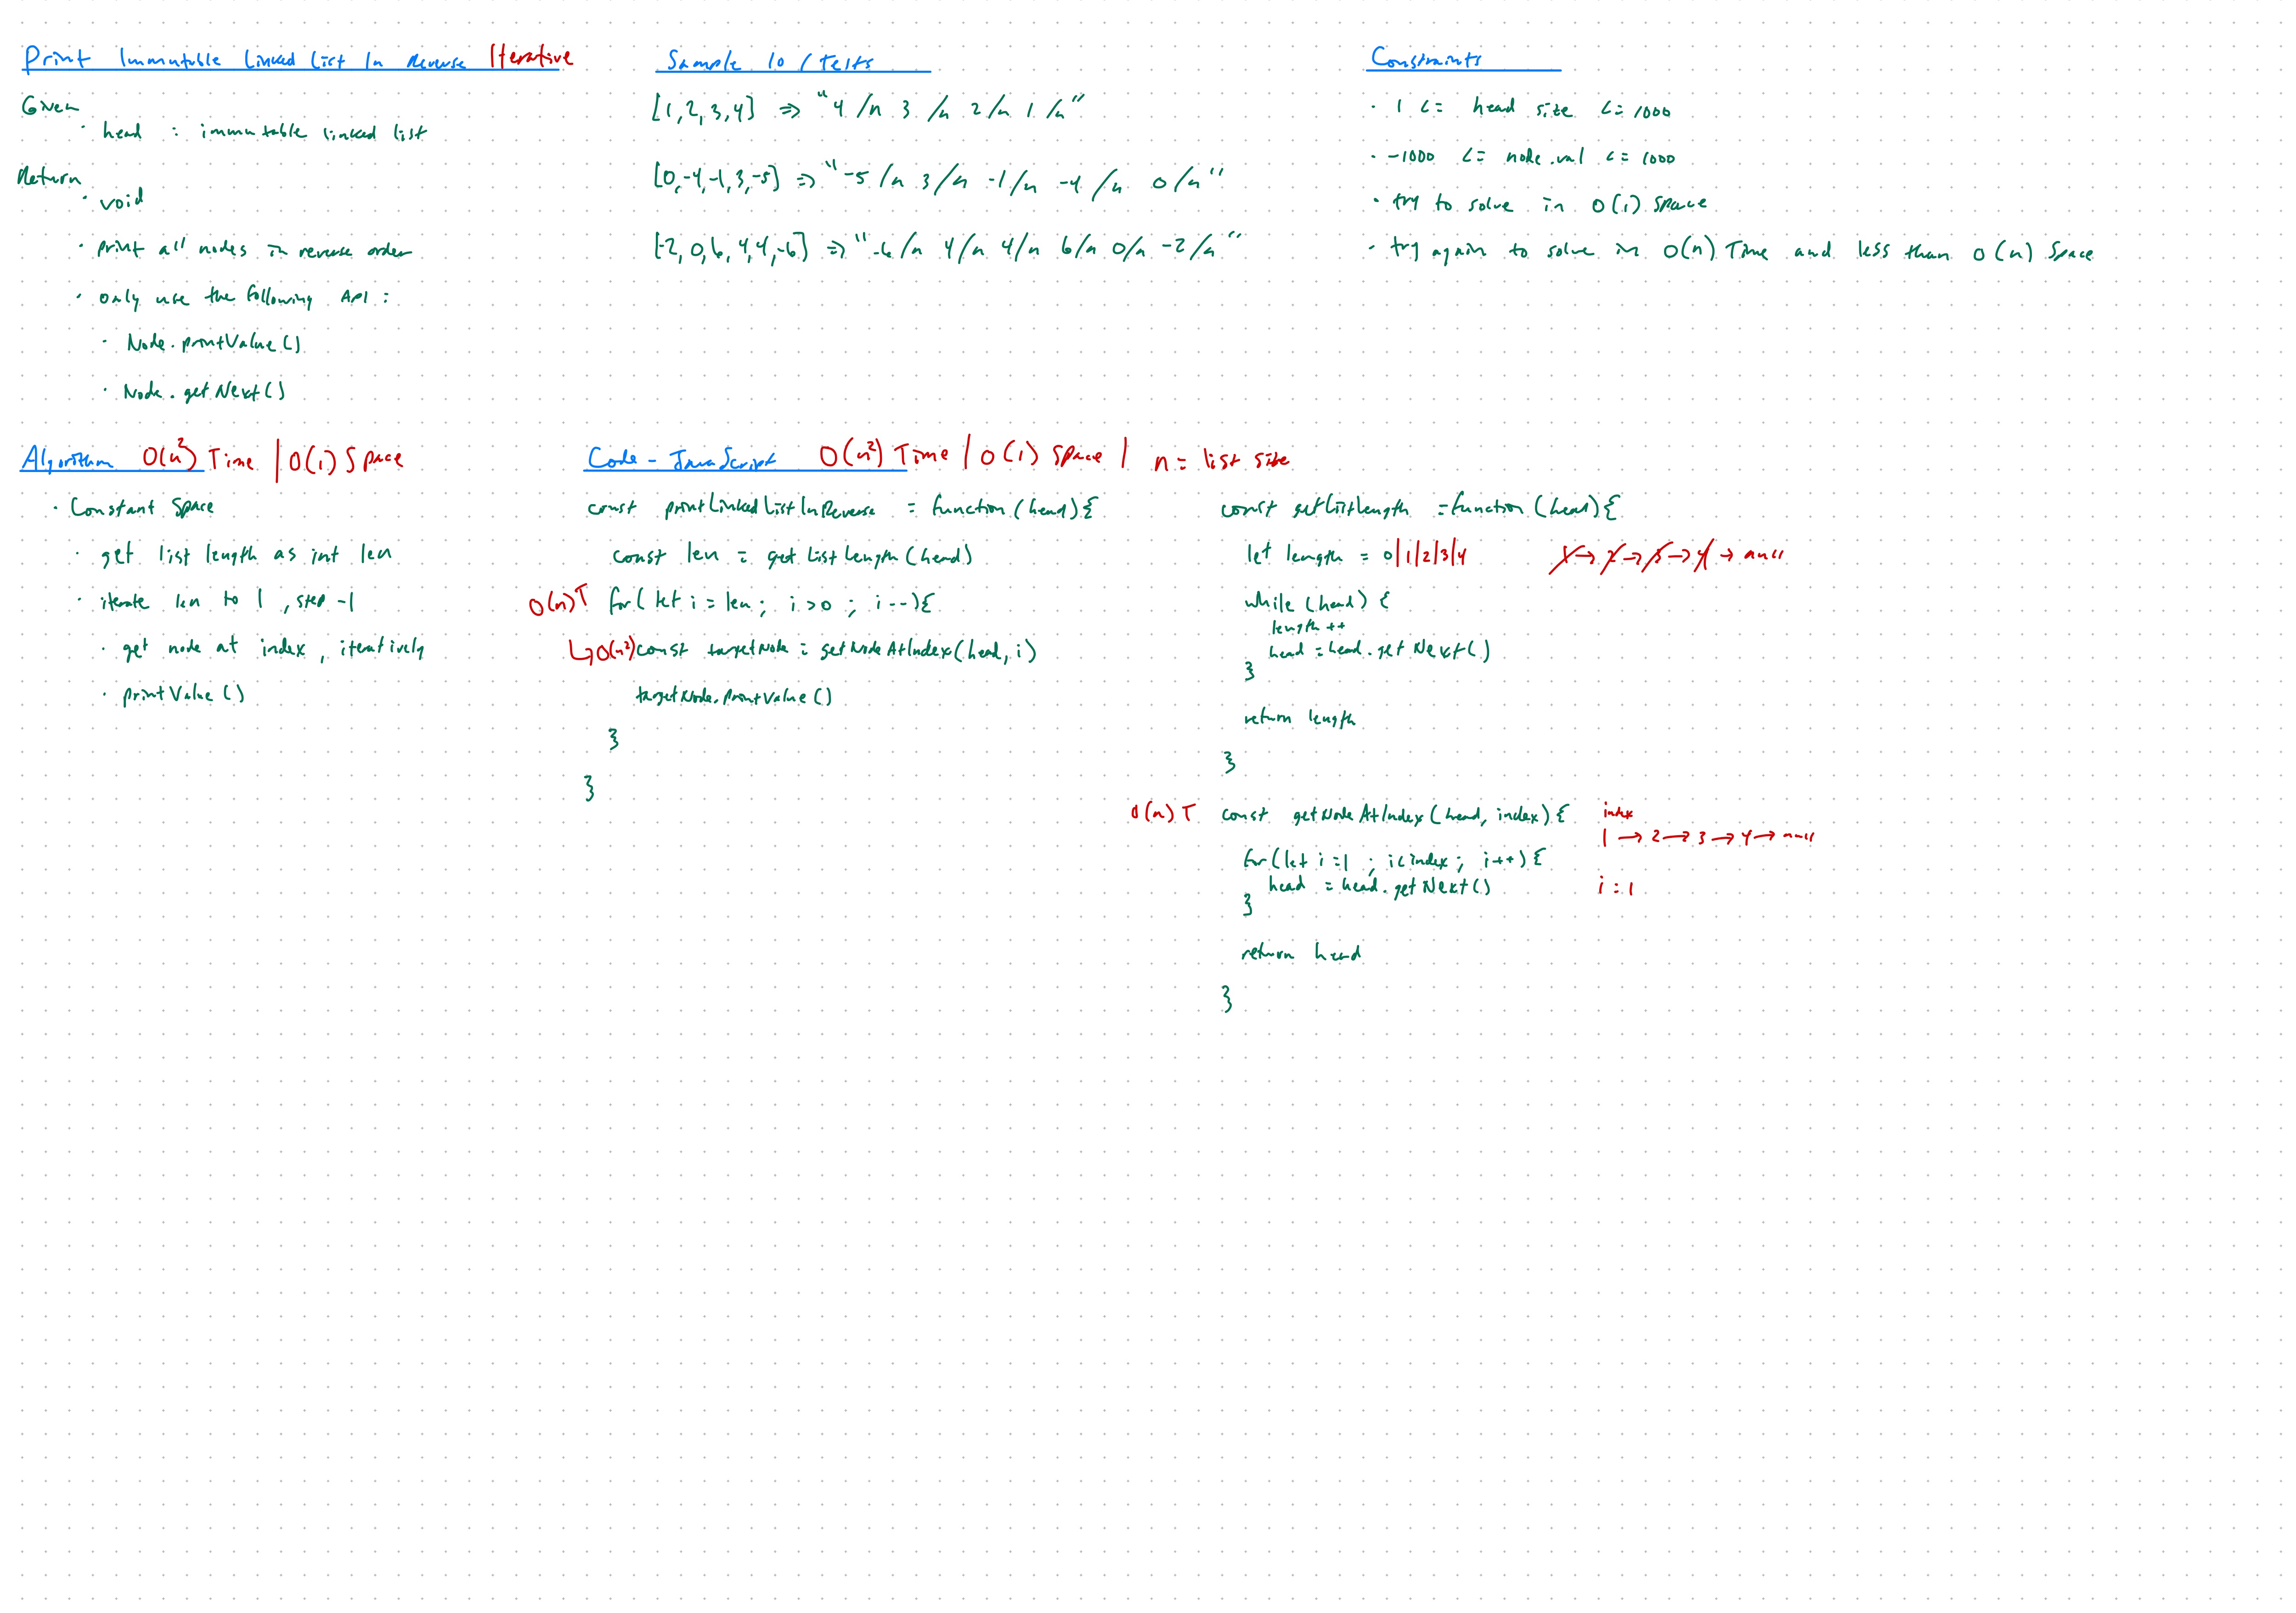 Print Immutable Linked List In Reverse Iterative
Given
· head : immutable linked list
Return
· void
· print all nodes in reverse order
· only use the following API :
· Node.printValue()
· Node.getNext()
Sample IO / Tests
[1,2,3,4] => "4 /n 3 /n 2 /n 1 /n"
[0,-4,-1,3,-5] => "-5 /n 3 /n -1 /n -4 /n 0 /n"
[-2,0,6,4,4,-6] => "-6 /n 4 /n 4 /n 6 /n 0 /n -2 /n"
Constraints
· 1 <= head size <= 1000
· -1000 <= node.val <= 1000
· try to solve in O(1) space
· try again to solve in O(n) Time and less than O(n) Space
Algorithm O(n²) Time | O(1) Space
· Constant Space
· get list length as int len
· iterate len to 1, step -1
· get node at index, iteratively
· printValue()
Code - JavaScript O(n²) Time | O(1) Space | n = list size
const printLinkedListInReverse = function(head){
const len = getListLength(head)
O(n)T for(let i = len; i>0; i--){
↳O(n²) const targetNode = getNodeAtIndex(head, i)
targetNode.printValue()
}
}
const getListLength = function(head){
let length = 0|1|2|3|4 1→2→3→4→null
while(head){
length++
head = head.getNext()
}
return length
}
O(n)T const getNodeAtIndex(head, index){ index
1→2→3→4→null
for(let i=1; i<index; i++){
head = head.getNext() i:1
}
return head
}